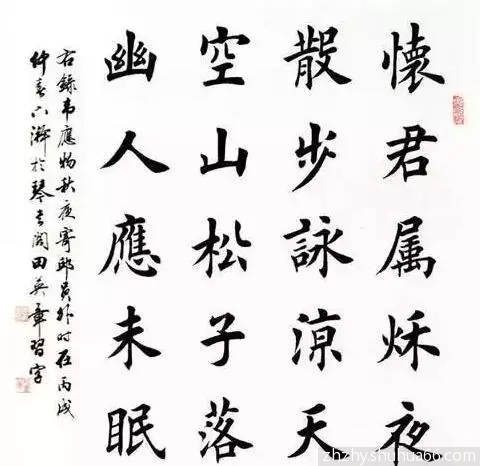 懷君属秌夜
散步詠涼天
空山松子落
幽人應未眠
右錄韦應物秋夜寄邱員外时在丙戌
仲春六 於琴 阁田英章習字
zhzhy.shuhua66.com